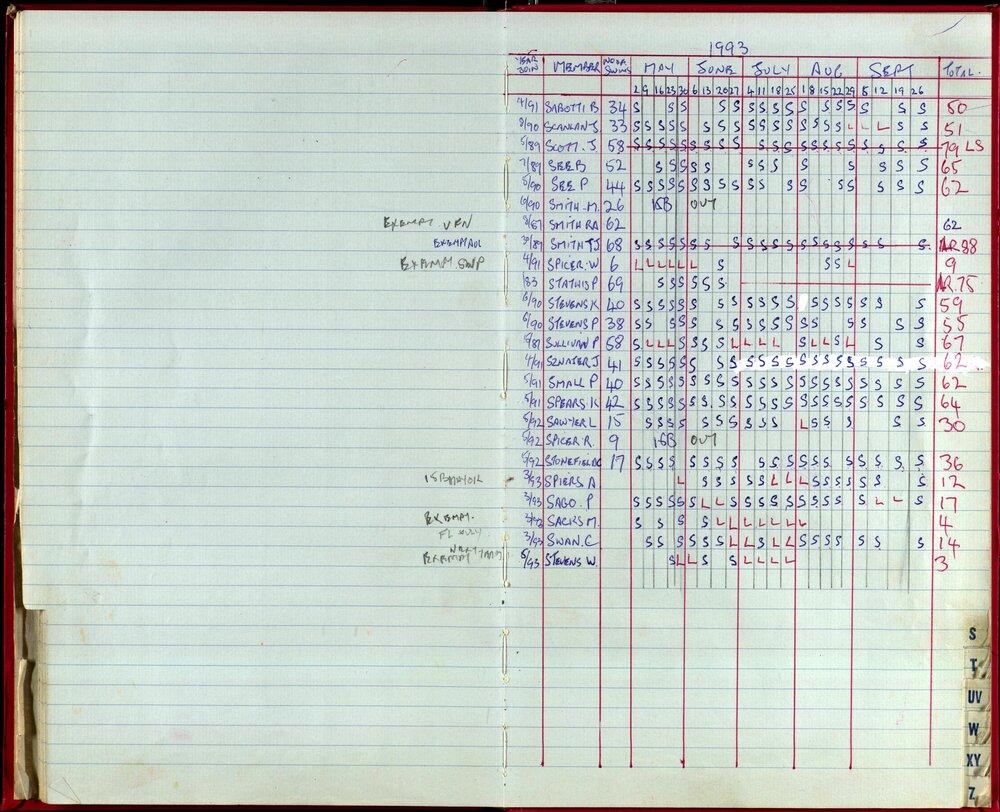 1993
YEAR JOIN MEMBER NO OF SWIMS MAY JUNE JULY AUG SEPT TOTAL
2 9 16 23 30 6 13 20 27 4 11 18 25 1 8 15 22 29 5 12 19 26
4/91 SABOTTI B 34 S S S S S S S S S S S S S S S S 50
8/90 SCANLAN J. 33 S S S S S S S S S S S S S S S S L L L S S 51
5/89 SCOTT. J 58 S S S S S S S S S S S S S S S S S S S S S 79 LS
7/89 SEE B 52 S S S S S S S S S S S S S 65
5/90 SEE P 44 S S S S S S S S S S S S S S S S S S 62
6/90 SMITH. M. 26 ISB OUT
EXEMPT. VFN 8/87 SMITH RA 62 62
EXEMPT AUL /89 SMITH TJ 68 S S S S S S S S S S S S S S S S S S S S NR 88
EXEMPT. SWP 4/91 SPICER. W 6 L L L L L L S S S L 9
/83 STATHIS P 69 S S S S S S NR. 75
6/90 STEVENS K 40 S S S S S S S S S S S S S S S S S S S 59
6/90 STEVENS P 38 S S S S S S S S S S S S S S S S S 55
5/87 SULLIVAN P 58 S L L L S S S S L L L L S L L S L S S 67
4/91 SZNATER J 41 S S S S S S S S S S S S S S S S S S S S S 62
5/91 SMALL P 40 S S S S S S S S S S S S S S S S S S S S S S 62
5/91 SPEARS K 42 S S S S S S S S S S S S S S S S S S S S S S 64
5/92 SAWYER L 15 S S S S S S S S S S L S S S S S 30
5/92 SPICER R. 9 ISB OUT
5/92 STONEFIELD 17 S S S S S S S S S S S S S S S S S S S S 36
3/93 SPIERS A L S S S S S L L L S S S S S S S S 12
3/93 SAGO. P S S S S S S L L S S S S S S S S S S L L S 17
EXEMPT. 3/93 SACKS M. S S S S L L L L L L L 4
FL
3/93 SWAN. C S S S S S S L L S L L S S S S S S S 14
NEXT
EXEMPT 5/93 STEVENS W. S L L S S L L L L 3
S
T
UV
W
XY
Z